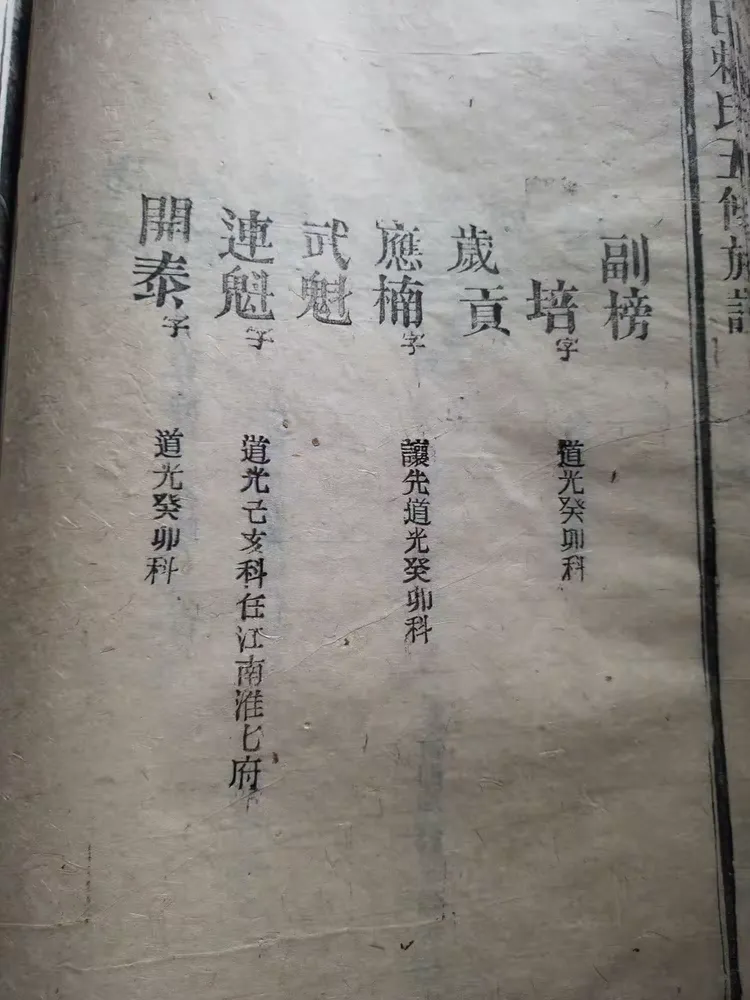 氏五修族譜
副榜
培字 道光癸卯科
歲貢
應楠字 讓先道光癸卯科
武魁
連魁字 道光己亥科任江南淮府
開泰字 道光癸卯科